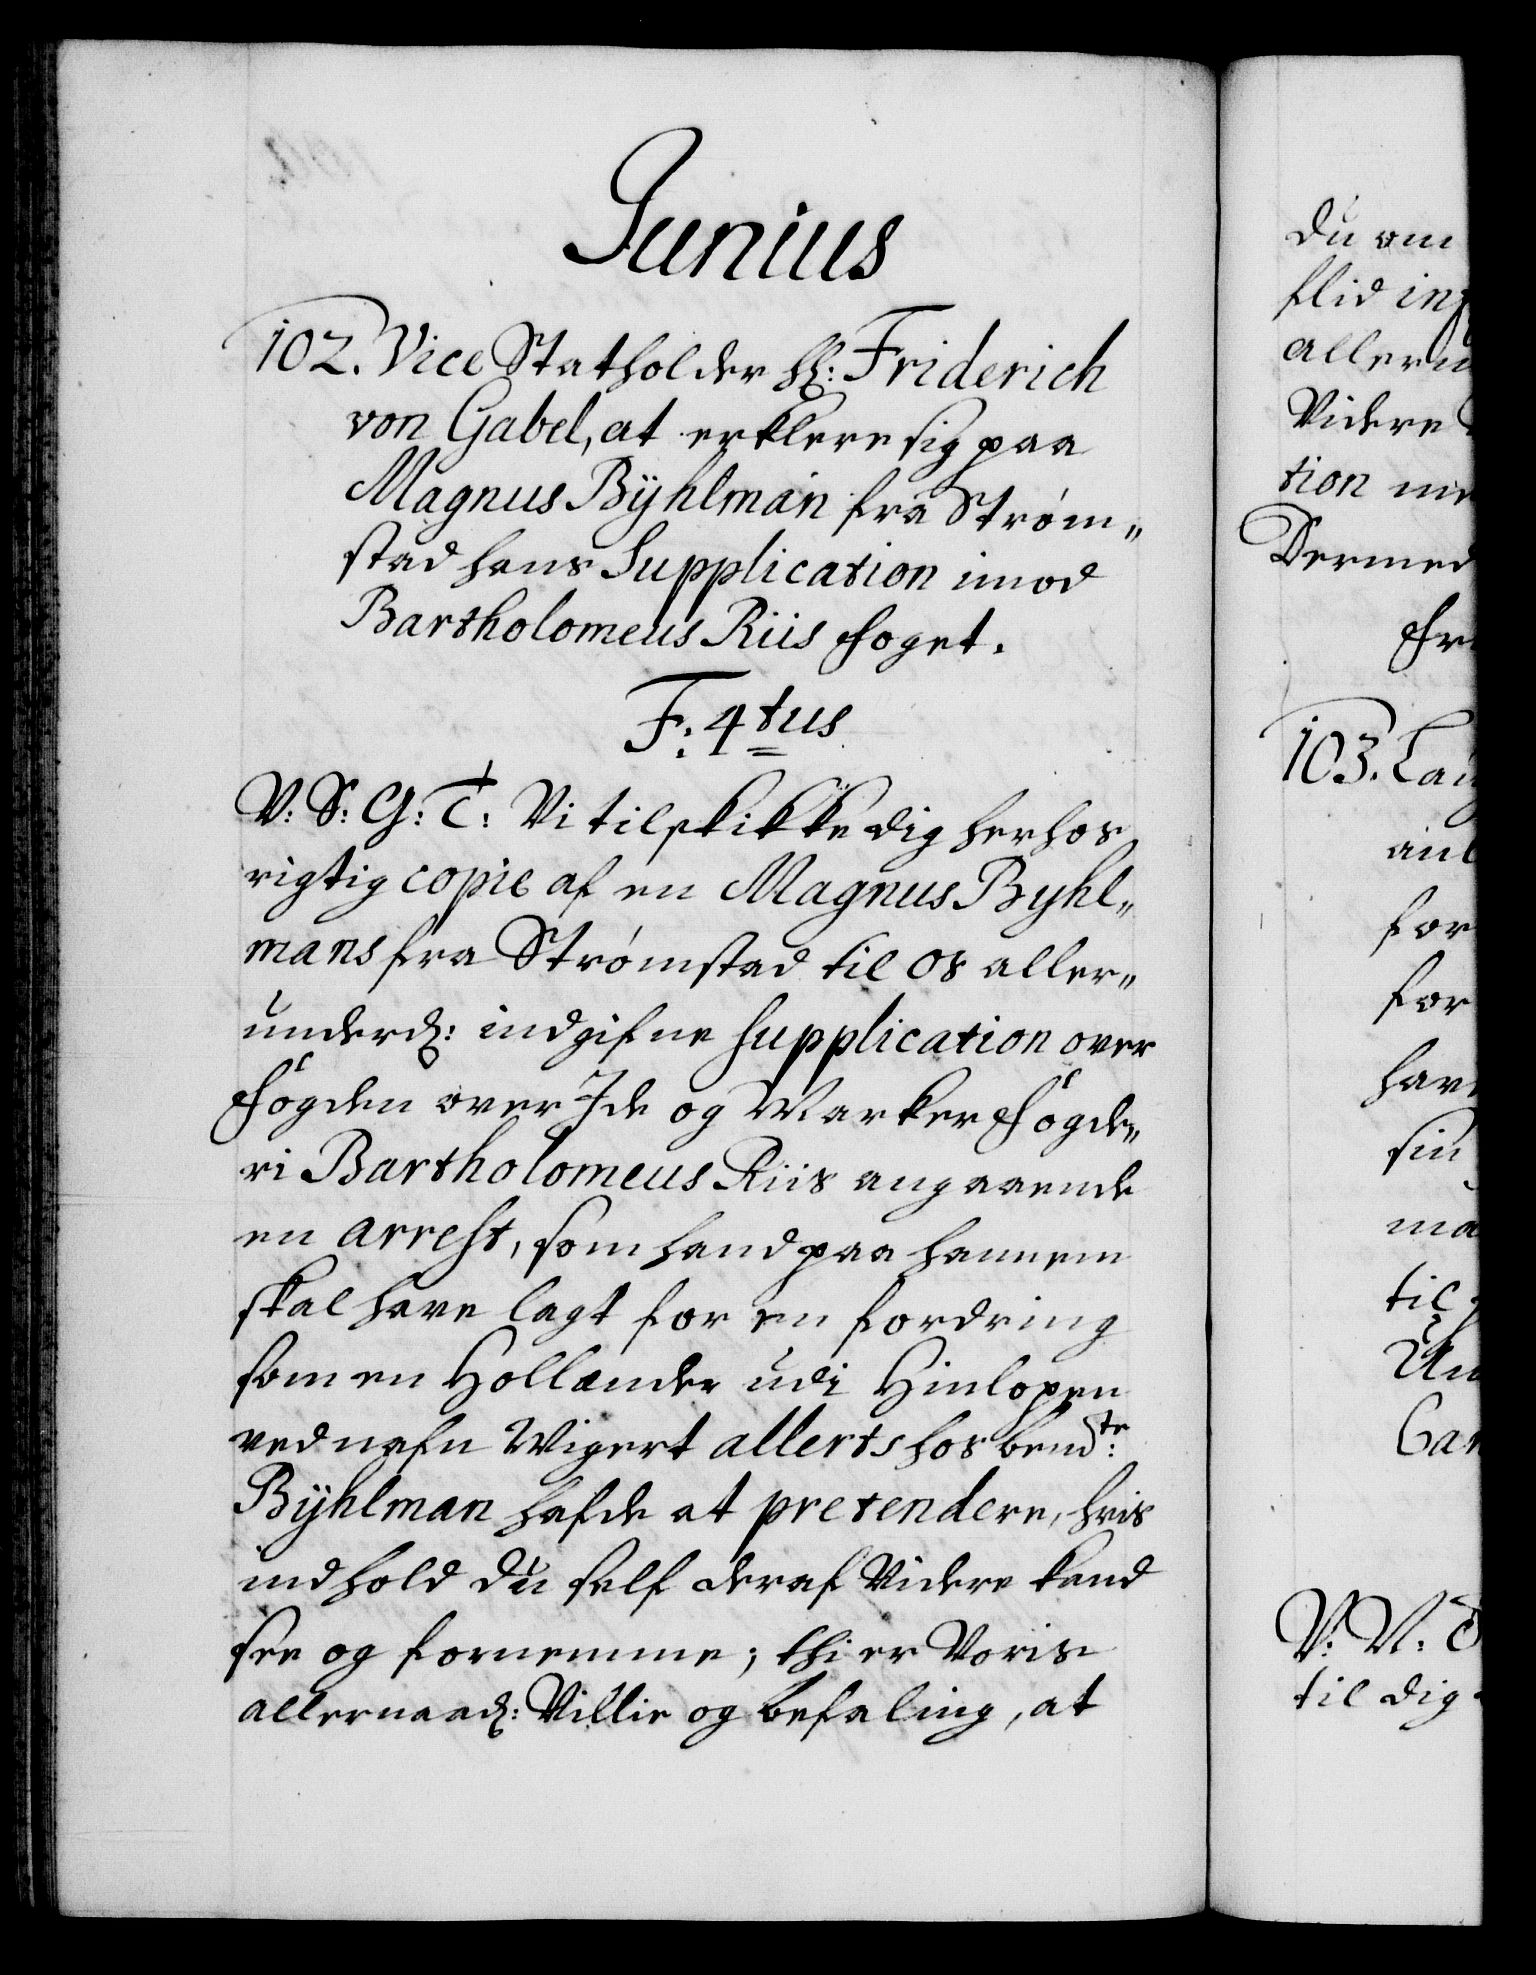 Junius
102. Vice Statholder H: Friderich
von Gabel, at erklere sig paa
Magnus Bÿhlman fra Strøm„
stad hans Supplication imod
Bartholomeus Riis foget.
F: 4tus
V: S: G: T: Vi tilskikke dig herhos
rigtig copie af en Magnus Byhl„
mans fra Strømstad til os aller„
underd: indgifne Supplication over
fogden over Ide og Marker fogde„
ri Bartholomeus Riis angaaende
en arrest, som hand paa hannem
skal have lagt for en fordring
som en Hollænder udi Hinlopen
ved nafn Wigert allerts hos bemte:
Bÿhlman hafde at pretendere, hvis
indhold du self deraf Videre kand
see og fornemme; thi er Voris
allernaad: Villie og befaling, at
du om
flid in
allern
Videre
tion
Dermed
Fr
103.
for
for
hav
sin
ma
til
V: N:
til dig